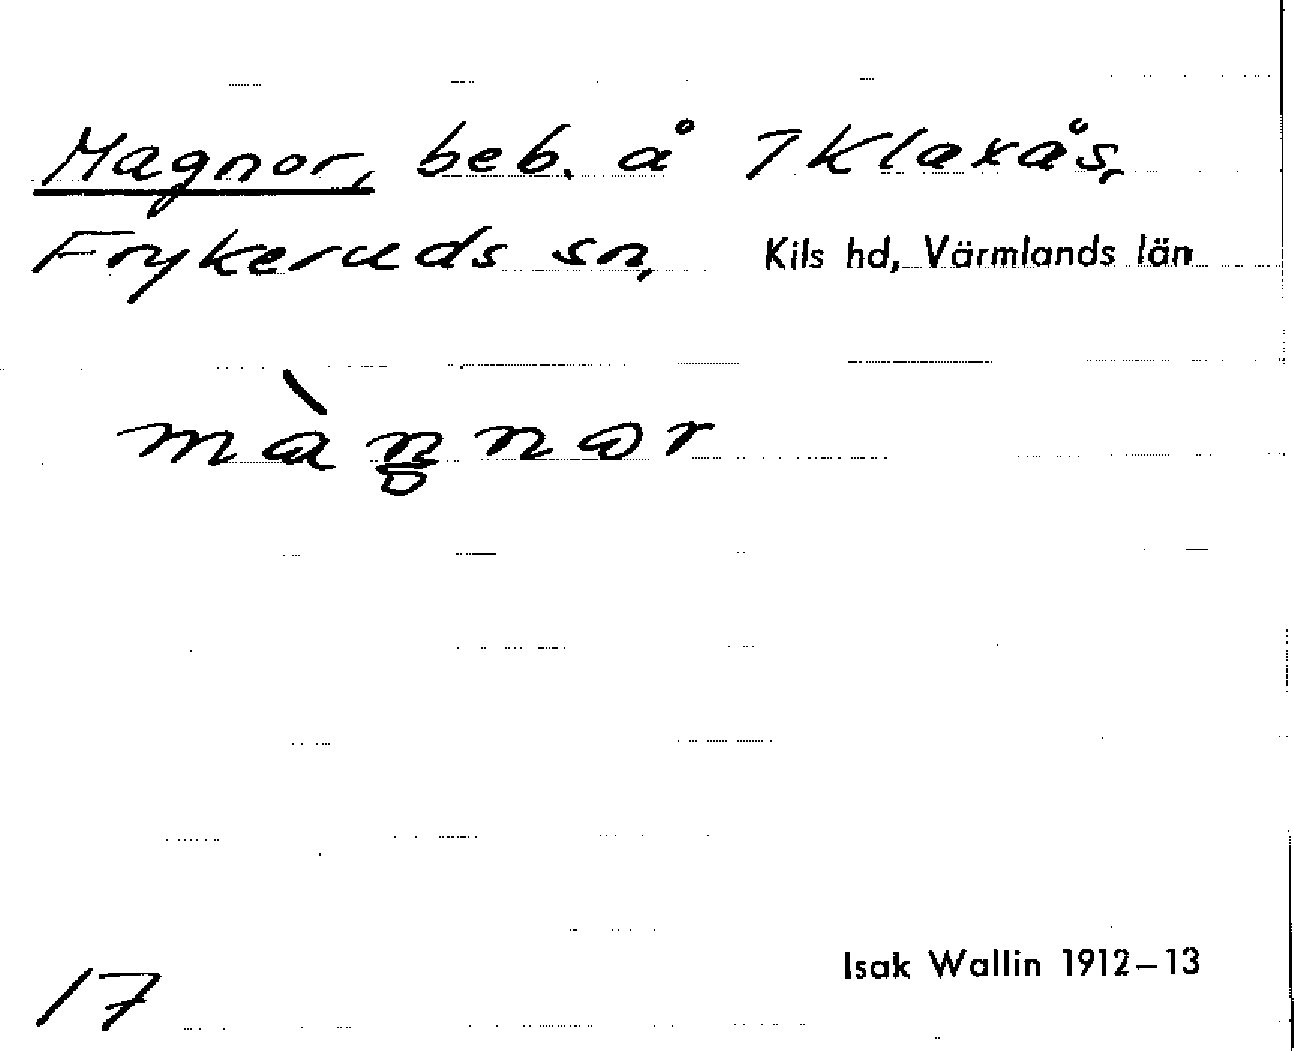 Magnor, beb. å 7 Klaxås,
Frykeruds sn, Kils hd, Värmlands län
màn̥nor
17
Isak Wallin 1912–13